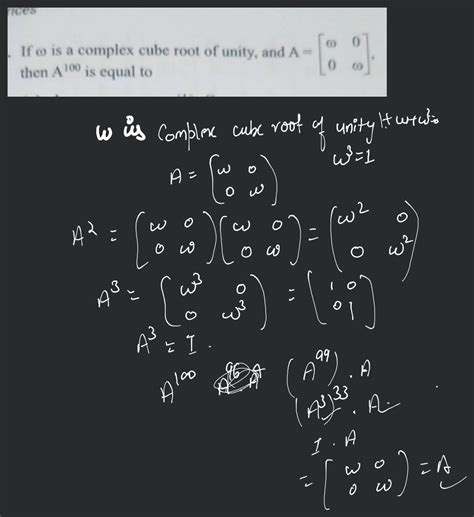 rices
. If ω is a complex cube root of unity, and A = [ω 0
0 ω],
then A^100 is equal to
ω is Complex cube root of unity 1+ω+ω²=0
ω³=1
A = (ω 0
0 ω)
A² = (ω 0
0 ω) (ω 0
0 ω) = (ω² 0
0 ω²)
A³ = (ω³ 0
0 ω³) = (1 0
0 1)
A³ = I.
A^100 (A^99) . A
(A³)^33 . A.
I . A
= (ω 0
0 ω) = A